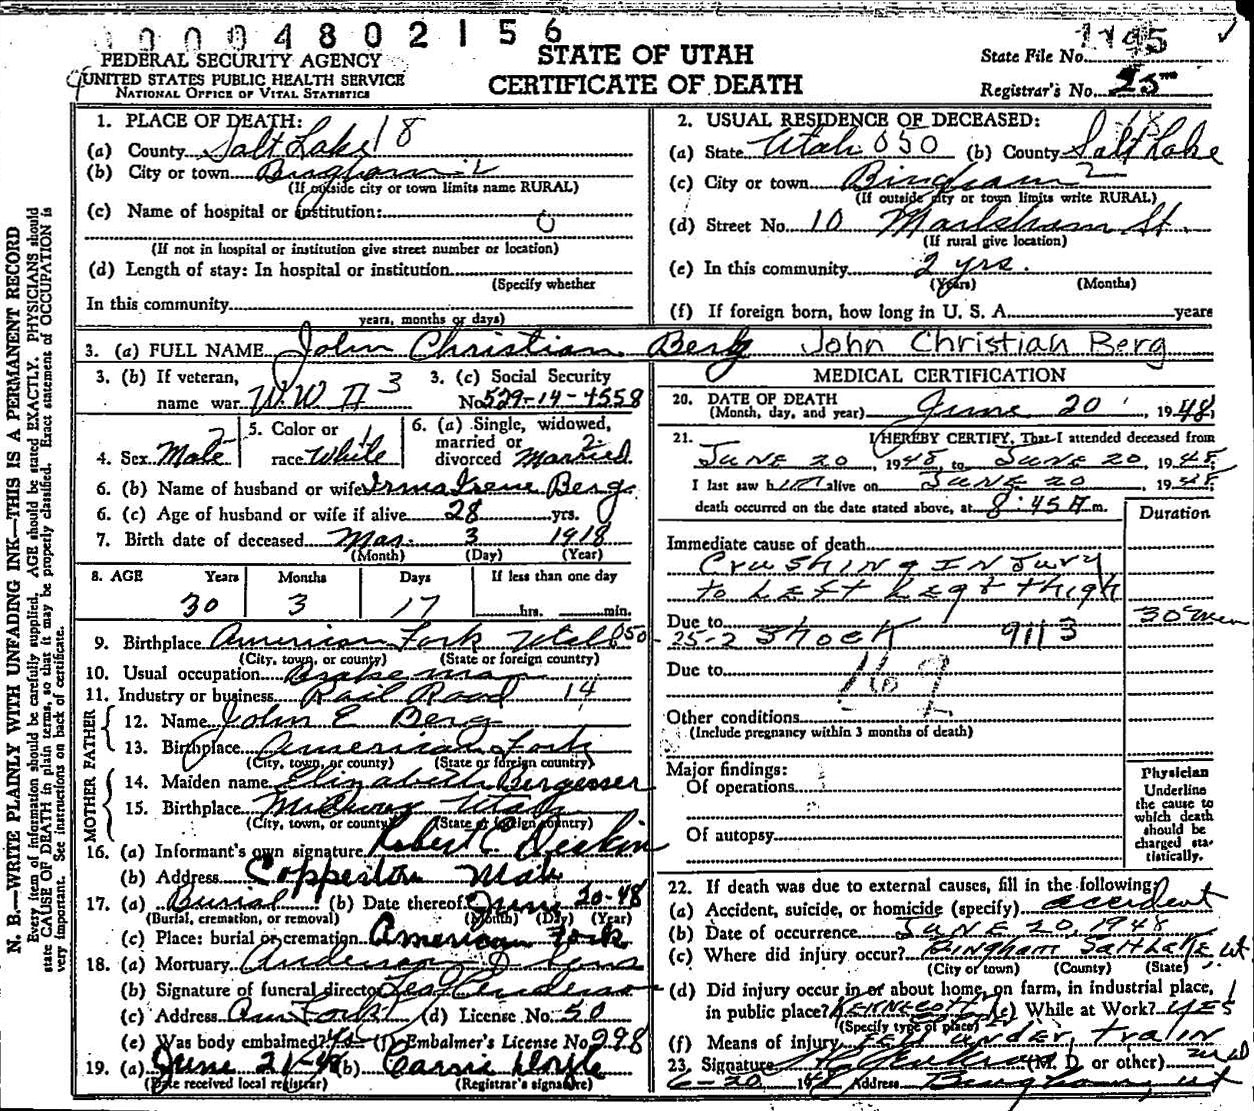 0 0 0 4 8 0 2 1 5 6
FEDERAL SECURITY AGENCY
UNITED STATES PUBLIC HEALTH SERVICE
NATIONAL OFFICE OF VITAL STATISTICS
STATE OF UTAH
CERTIFICATE OF DEATH
State File No. 1195
Registrar's No. 25
N. B.—WRITE PLAINLY WITH UNFADING INK—THIS IS A PERMANENT RECORD
Every item of information should be carefully supplied. AGE should be stated EXACTLY. PHYSICIANS should
state CAUSE OF DEATH in plain terms, so that it may be properly classified. Exact statement of OCCUPATION is
very important. See instructions on back of certificate.
1. PLACE OF DEATH:
(a) County Salt Lake 18
(b) City or town Bingham 2
(If outside city or town limits name RURAL)
(c) Name of hospital or institution:
0
(If not in hospital or institution give street number or location)
(d) Length of stay: In hospital or institution
(Specify whether
In this community
years, months or days)
2. USUAL RESIDENCE OF DECEASED:
18
(a) State Utah 050 (b) County Salt Lake
(c) City or town Bingham 2
(If outside city or town limits write RURAL)
(d) Street No. 10 St.
(If rural give location)
(e) In this community 2 yrs.
(Years) (Months)
(f) If foreign born, how long in U. S. A. years
3. (a) FULL NAME John Christian Berg John Christian Berg
3. (b) If veteran,
name war W.W II 3
3. (c) Social Security
No. 529-14-4558
4. Sex Male 2
5. Color or
race White 1
6. (a) Single, widowed,
married or
divorced Married 2
6. (b) Name of husband or wife Irma Irene Berg
6. (c) Age of husband or wife if alive 28 yrs.
7. Birth date of deceased Mar. 3 1918
(Month) (Day) (Year)
8. AGE Years Months Days If less than one day
30 3 17 hrs. min.
9. Birthplace American Fork Utah 050
(City, town, or county) (State or foreign country)
10. Usual occupation Brakeman
11. Industry or business Rail Road 14
FATHER
12. Name John E Berg
13. Birthplace American Fork
(City, town, or county) (State or foreign country)
MOTHER
14. Maiden name Elizabeth
15. Birthplace Midway Utah
(City, town, or county) (State or foreign country)
16. (a) Informant's own signature Robert C
(b) Address Copperton Utah
17. (a) Burial (b) Date thereof June 20-48
(Burial, cremation, or removal) (Month) (Day) (Year)
(c) Place: burial or cremation American Fork
18. (a) Mortuary Anderson & Sons
(b) Signature of funeral director Anderson
(c) Address Am Fork (d) License No. 50
(e) Was body embalmed? (f) Embalmer's License No. 298
19. (a) June 21-48 (b) Carrie
(Date received local registrar) (Registrar's signature)
MEDICAL CERTIFICATION
20. DATE OF DEATH
(Month, day, and year) June 20, 1948,
21. I HEREBY CERTIFY, That I attended deceased from
JUNE 20, 1948, to JUNE 20, 1948,
I last saw him alive on JUNE 20, 1948
death occurred on the date stated above, at 8:45 A m.
Duration
Immediate cause of death
Crushing Injury
to Left Leg & Thigh
Due to 30 min
25-2 Shock 9113
Due to
169
Other conditions
(Include pregnancy within 3 months of death)
Major findings:
Of operations
Of autopsy
Physician
Underline
the cause to
which death
should be
charged sta-
tistically.
22. If death was due to external causes, fill in the following:
(a) Accident, suicide, or homicide (specify) accident
(b) Date of occurrence JUNE 20, 1948
(c) Where did injury occur? Bingham Salt Lake Ut
(City or town) (County) (State)
(d) Did injury occur in or about home, on farm, in industrial place,
in public place? Kennecott (e) While at Work? YES
(Specify type of place)
(f) Means of injury Fell under train
23. Signature (M. D. or other) md
6-20 1948 Address Bingham, Ut